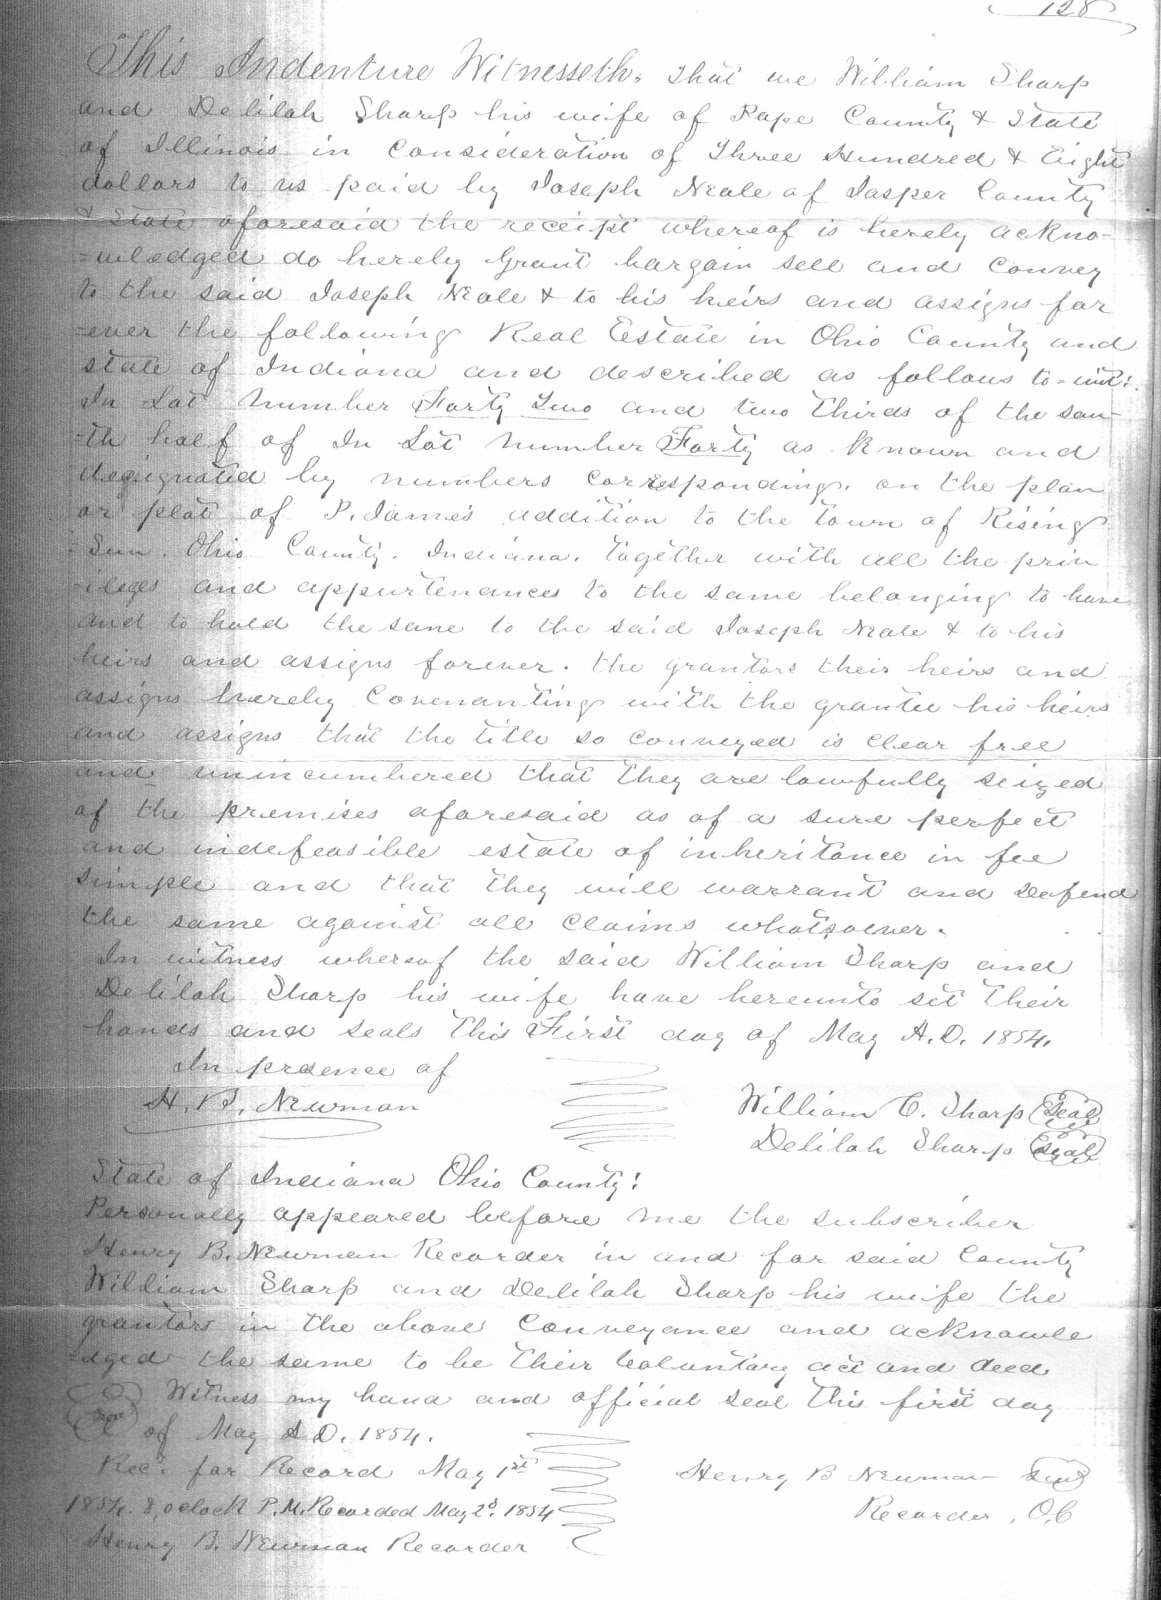 128
This Indenture Witnesseth, That we William Sharp
and Delilah Sharp his wife of Pape County & State
of Illinois in consideration of Three Hundred & Eight
dollars to us paid by Joseph Neale of Jasper County
& State aforesaid the receipt whereof is hereby ackno-
=wledged do hereby Grant bargain sell and convey
to the said Joseph Neale & to his heirs and assigns for
=ever the following Real Estate in Ohio County and
state of Indiana and described as follows to=wit:
In Lot Number Forty Two and two thirds of the sou-
=th half of In Lot Number Forty as known and
designated by numbers corresponding, on the plan
or plat of P. James addition to the town of Rising
=Sun. Ohio County. Indiana. together with all the priv
=ileges and appurtenances to the same belonging to have
and to hold the same to the said Joseph Neale & to his
heirs and assigns forever. the grantors their heirs and
assigns hereby Covenanting with the grantee his heirs
and assigns that the title so conveyed is clear free
and unincumbered that they are lawfully seized
of the premises aforesaid as of a sure perfect
and indefeasible estate of inheritance in fee
simple and that they will warrant and Defend
the same against all claims whatsoever.
In witness whereof the said William Sharp and
Delilah Sharp his wife have hereunto set their
hands and seals this First day of May A.D. 1854.
In prsence of
H. B. Newman
William C. Sharp Seal
Delilah Sharp Seal
State of Indiana Ohio County:
Personally appeared before me the subscriber
Henry B. Newman Recorder in and for said County
William Sharp and Delilah Sharp his wife the
grantors in the above Conveyance and acknowle
=dged the same to be their Voluntary act and deed
Witness my hand and official seal this first day
of May A D. 1854.
Rec. for Record May 1st
Henry B Newman Seal
1854. 8, oclock P.M. Recorded May 2d. 1854
Recorder, O.C
Henry B. Newman Recorder